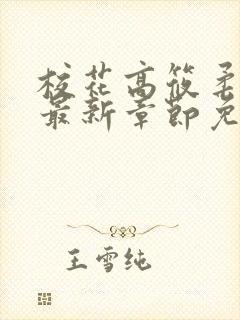 校花高筱柔
最新章节免
王雪纯